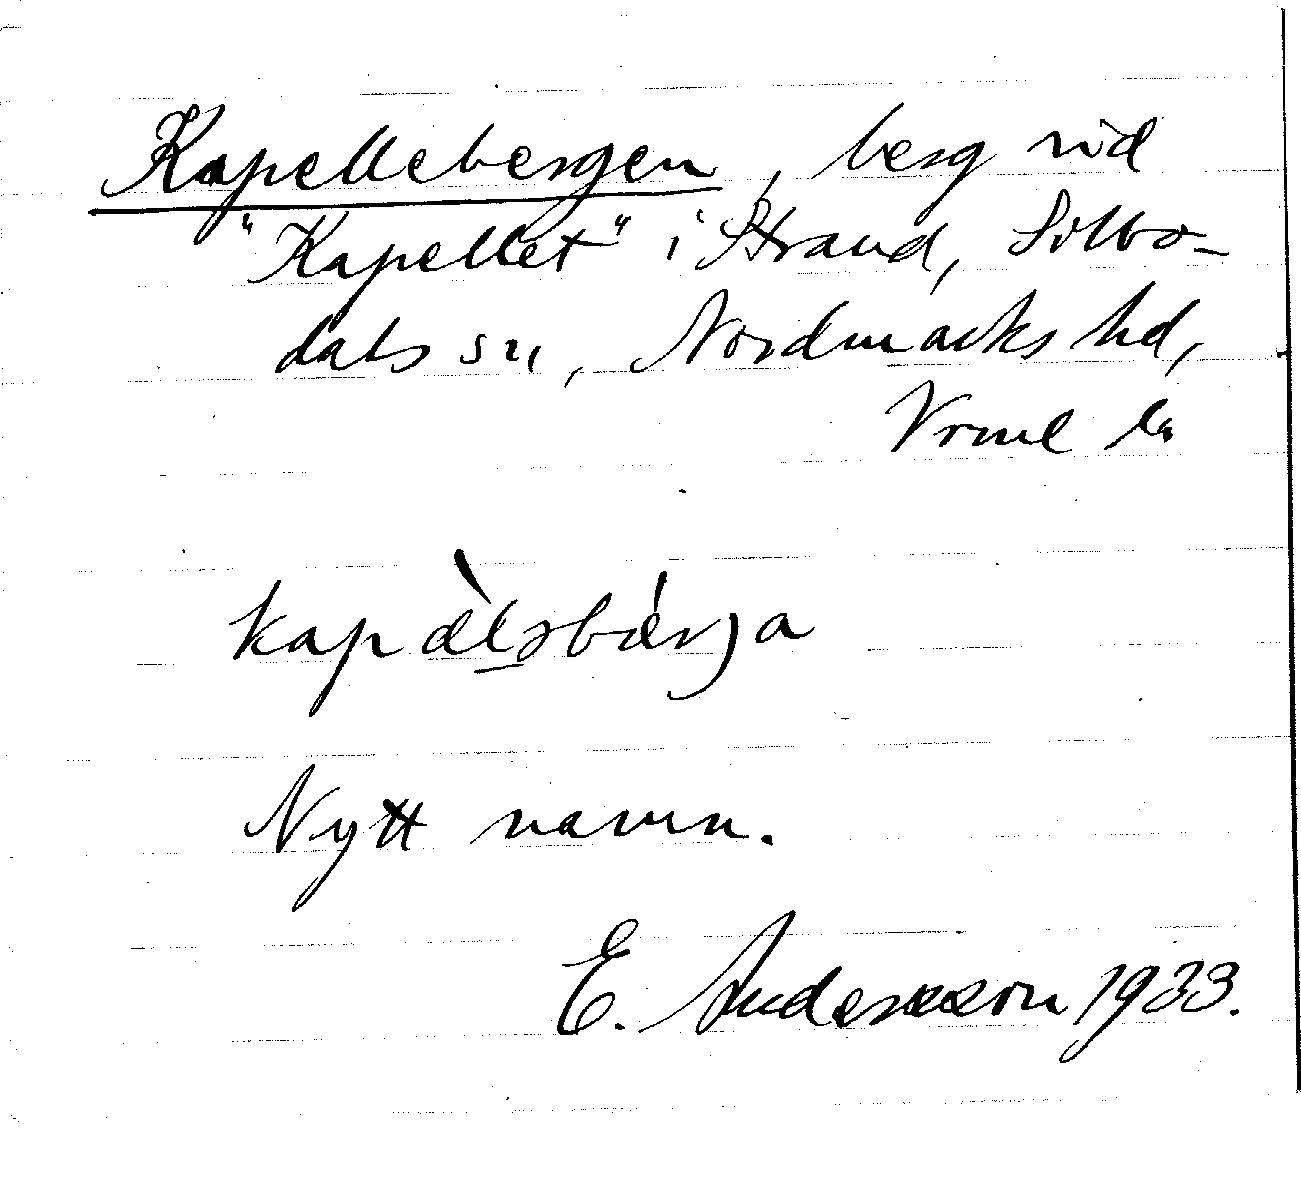 Kapellebergen, berg vid
"Kapellet" i Strand, Silbo-
dals sn, Nordmarks hd,
Vrml ln
kapæ̀l̠sbǽrja
Nytt namn.
E. Andersson 1933.